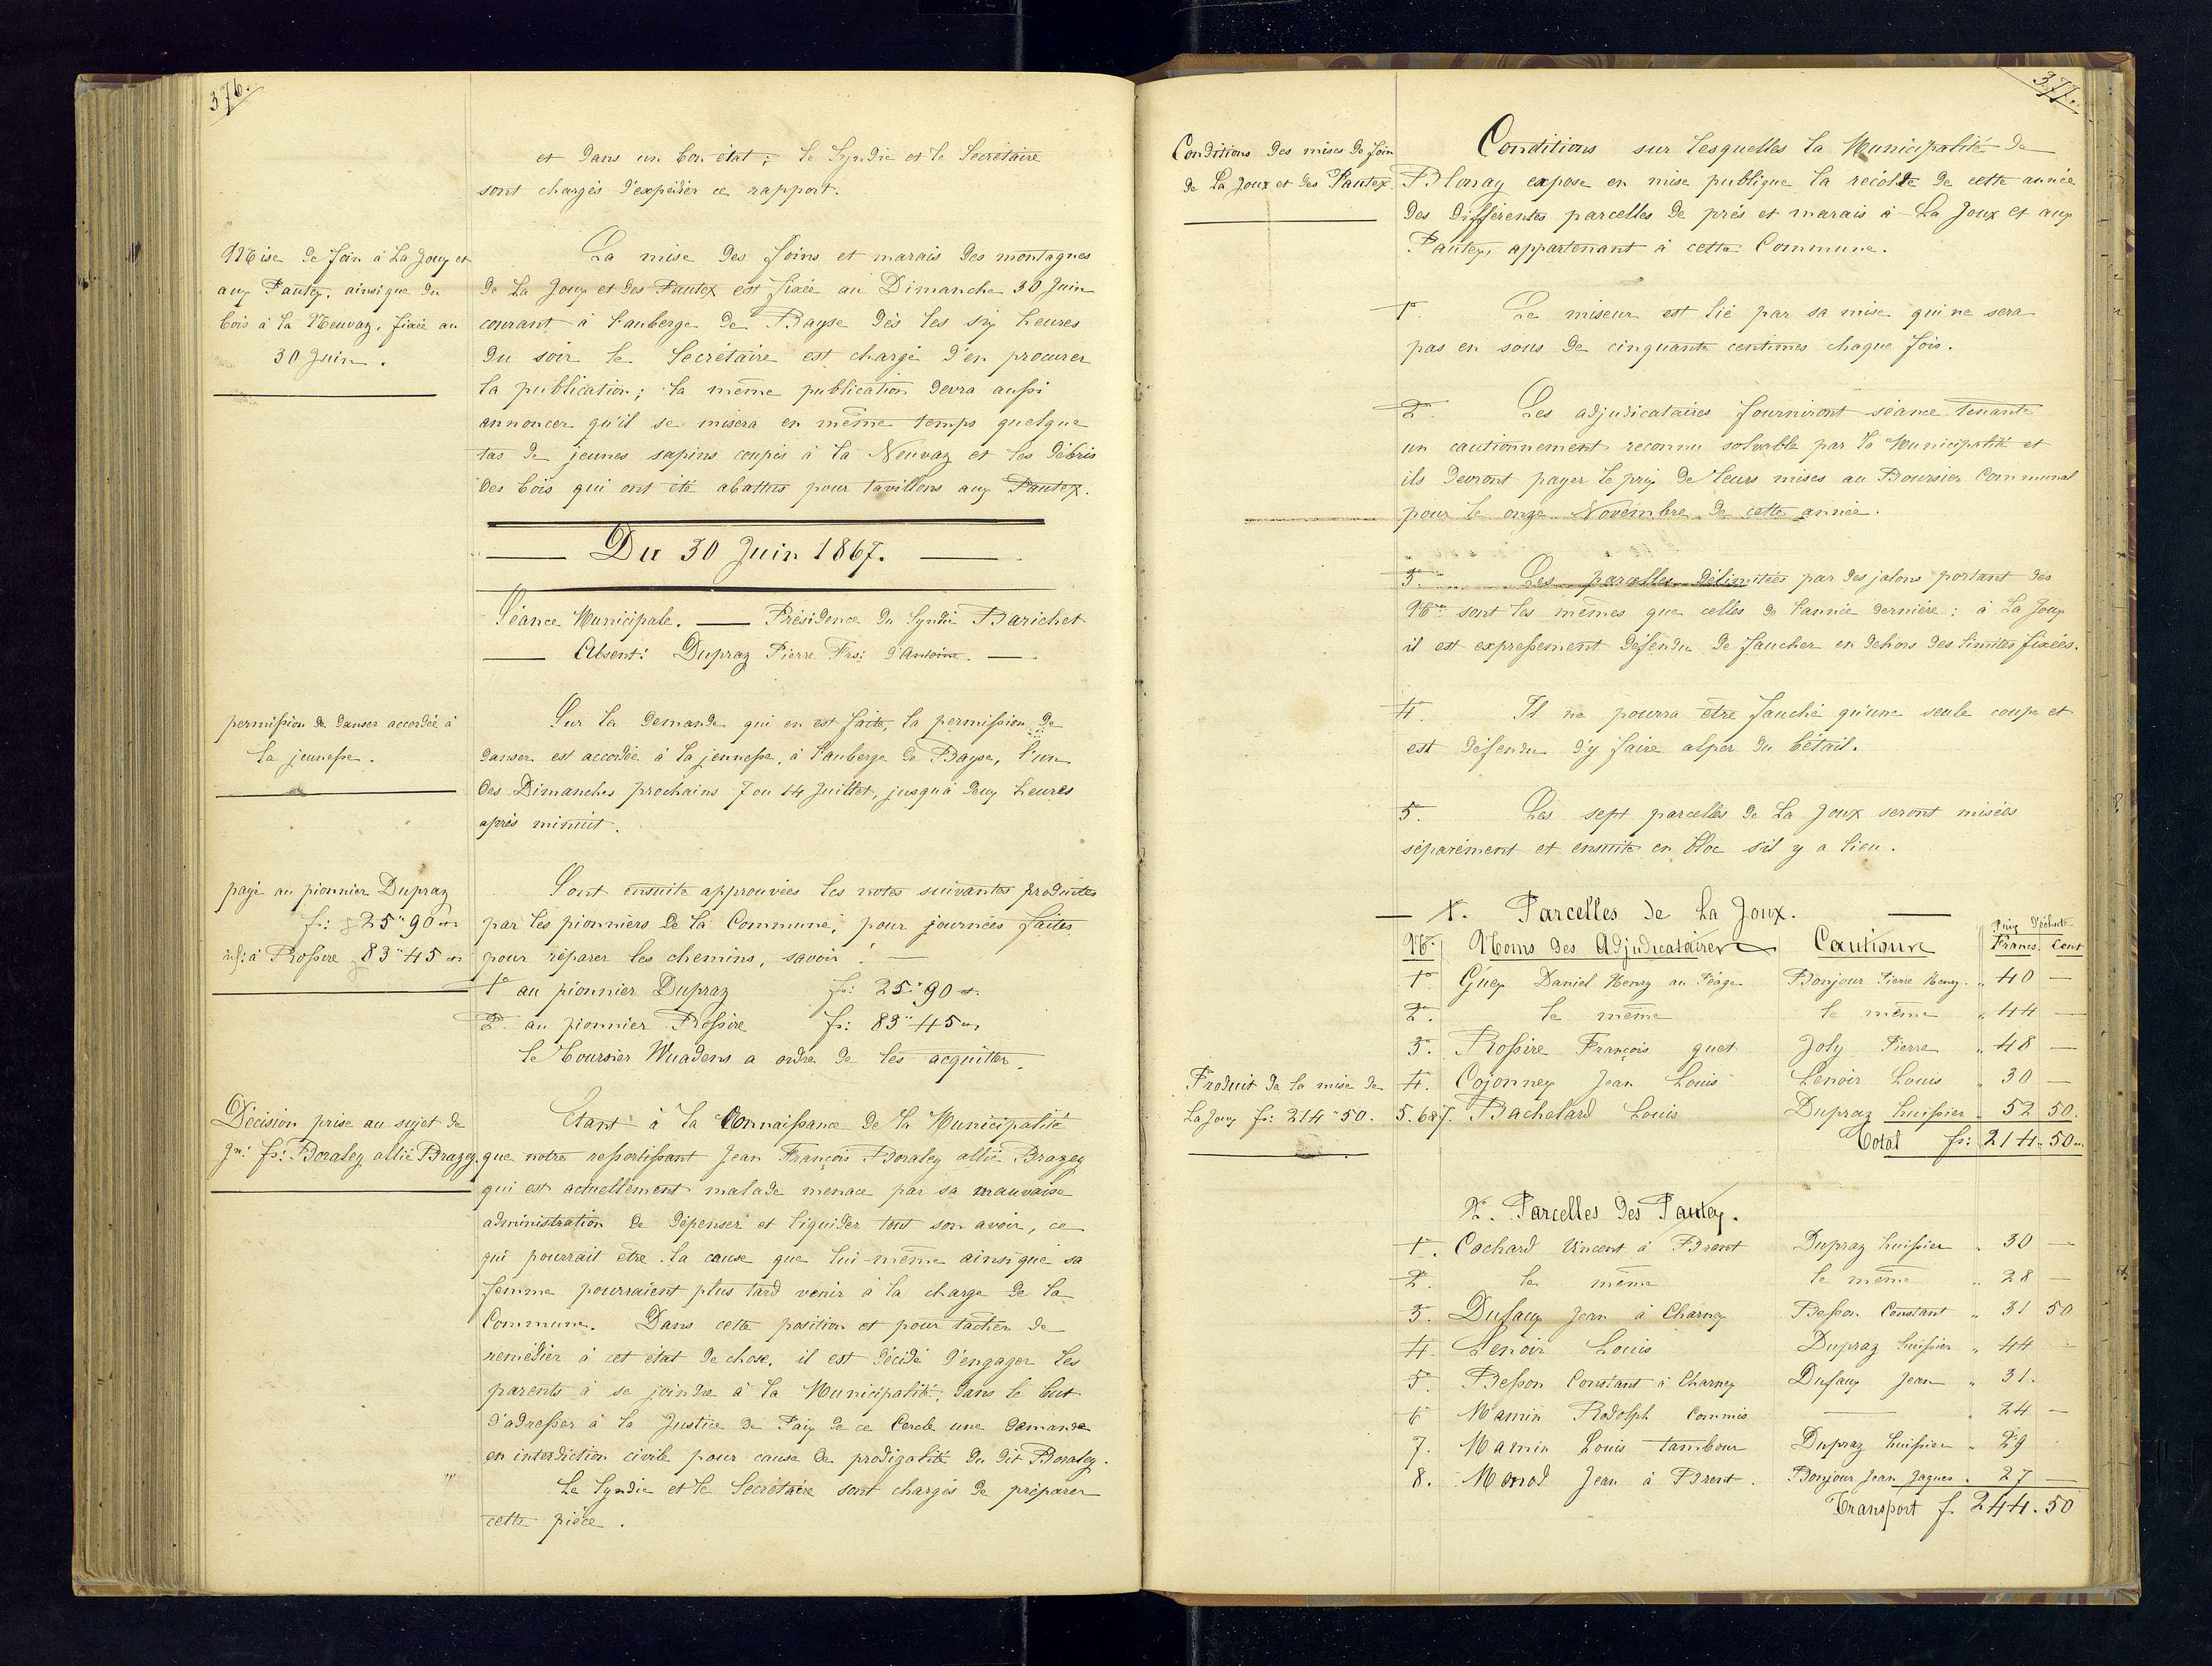 376.
et dans un bon état ; le Syndic et le Secrétaire
sont chargés d'expédier ce rapport.
Mise de foin à La Joux et
aux Pautex, ainsi que du
bois à la Neuvaz, fixée au
30 Juin.
La mise des foins et marais des montagnes
de La Joux et des Pautex est fixée au Dimanche 30 Juin
courant à l'auberge de Bayse dès les six heures
du soir le Secrétaire est chargé d'en procurer
la publication ; la même publication devra aussi
annoncer qu'il se misera en même temps quelque
tas de jeunes sapins coupés à la Neuvaz et les débris
des bois qui ont été abattus pour tavillons aux Pautex.
Du 30 Juin 1867.
Séance Municipale. — Présidence du Syndic Barichet
Absent: Dupraz Pierre Frs: d'Antoine.
permission de danser accordée à
la jeunesse.
Sur la demande qui en est faite, la permission de
danser est accordée à la jeunesse, à l'auberge de Bayse, l'un
des Dimanches prochains 7 ou 14 Juillet, jusqu'à deux heures
après minuit.
payé au pionnier Dupraz
fr: 25"90 cs.
id: à Rossire 83"45 cs
Sont ensuite approuvées les notes suivantes produites
par les pionniers de la Commune, pour journées faites
pour réparer les chemins, savoir : —
1° au pionnier Dupraz fr: 25"90 cs.
2° au pionnier Rossire fr: 83"45 cs
le boursier Wuadens a ordre de les acquitter.
Décision prise au sujet de
Jn: fs: Boraley allié Brazey
Etant à la Connaissance de la Municipalité
que notre ressortissant Jean François Boraley allié Brazey
qui est actuellement malade menace par sa mauvaise
administration de dépenser et liquider tout son avoir, ce
qui pourrait être la cause que lui-même ainsi que sa
femme pourraient plus tard venir à la charge de la
Commune. Dans cette position et pour tâcher de
remédier à cet état de chose, il est décidé d'engager les
parents à se joindre à la Municipalité, dans le but
d'adresser à la Justice de Paix de ce Cercle une demande
en interdiction civile pour cause de prodigalité du dit Boraley.
Le Syndic et le Secrétaire sont chargés de préparer
cette pièce.
377.
Conditions des mises de foin
de La Joux et des Pautex
Conditions sur lesquelles la Municipalité de
Blonay expose en mise publique la récolte de cette année
des différentes parcelles de prés et marais à La Joux et aux
Pautex, appartenant à cette Commune.
1° Le miseur est lié par sa mise qui ne sera
pas en sous de cinquante centimes chaque fois.
2° Les adjudicataires fourniront séance tenante
un cautionnement reconnu solvable par la Municipalité et
ils devront payer le prix de leurs mises au Boursier Communal
pour le onze Novembre de cette année.
3° Les parcelles délimitées par des jalons portant des
Nos sont les mêmes que celles de l'année dernière : à La Joux
il est expressement défendu de faucher en dehors des limites fixées.
4° Il ne pourra être fauché qu'une seule coupe et
est défendu d'y faire alper du bétail.
5° Les sept parcelles de La Joux seront misées
séparément et ensuite en bloc s'il y a lieu.
1. Parcelles de La Joux.
Prix d'échute
Nos Noms des Adjudicataires Cautions Francs. Cent
1° Guex Daniel Henry au Péage Bonjour Pierre Henry " 40 —
2° le même le même " 44 —
3° Rossire François guet Joly Pierre " 48 —
Produit de la mise de
La Joux fr: 214"50.
4° Cojonnex Jean Louis Lenoir Louis " 30 —
5. 6 & 7. Bachelard Louis Dupraz huissier " 52 50.
Total fr: 214.50 cs
2. Parcelles des Pautex.
1° Cochard Vincent à Brent Dupraz huissier " 30 —
2° le même le même " 28 —
3° Dufaux Jean à Charnex Besson Constant " 31 50
4° Lenoir Louis Dupraz huissier " 44 —
5° Besson Constant à Charnex Dufaux Jean " 31.
6° Mamin Rodolph Commis — " 24 —
7. Mamin Louis tambour Dupraz huissier " 29
8. Monod Jean à Brent Bonjour Jean Jaques " 27 —
Transport f. 244.50